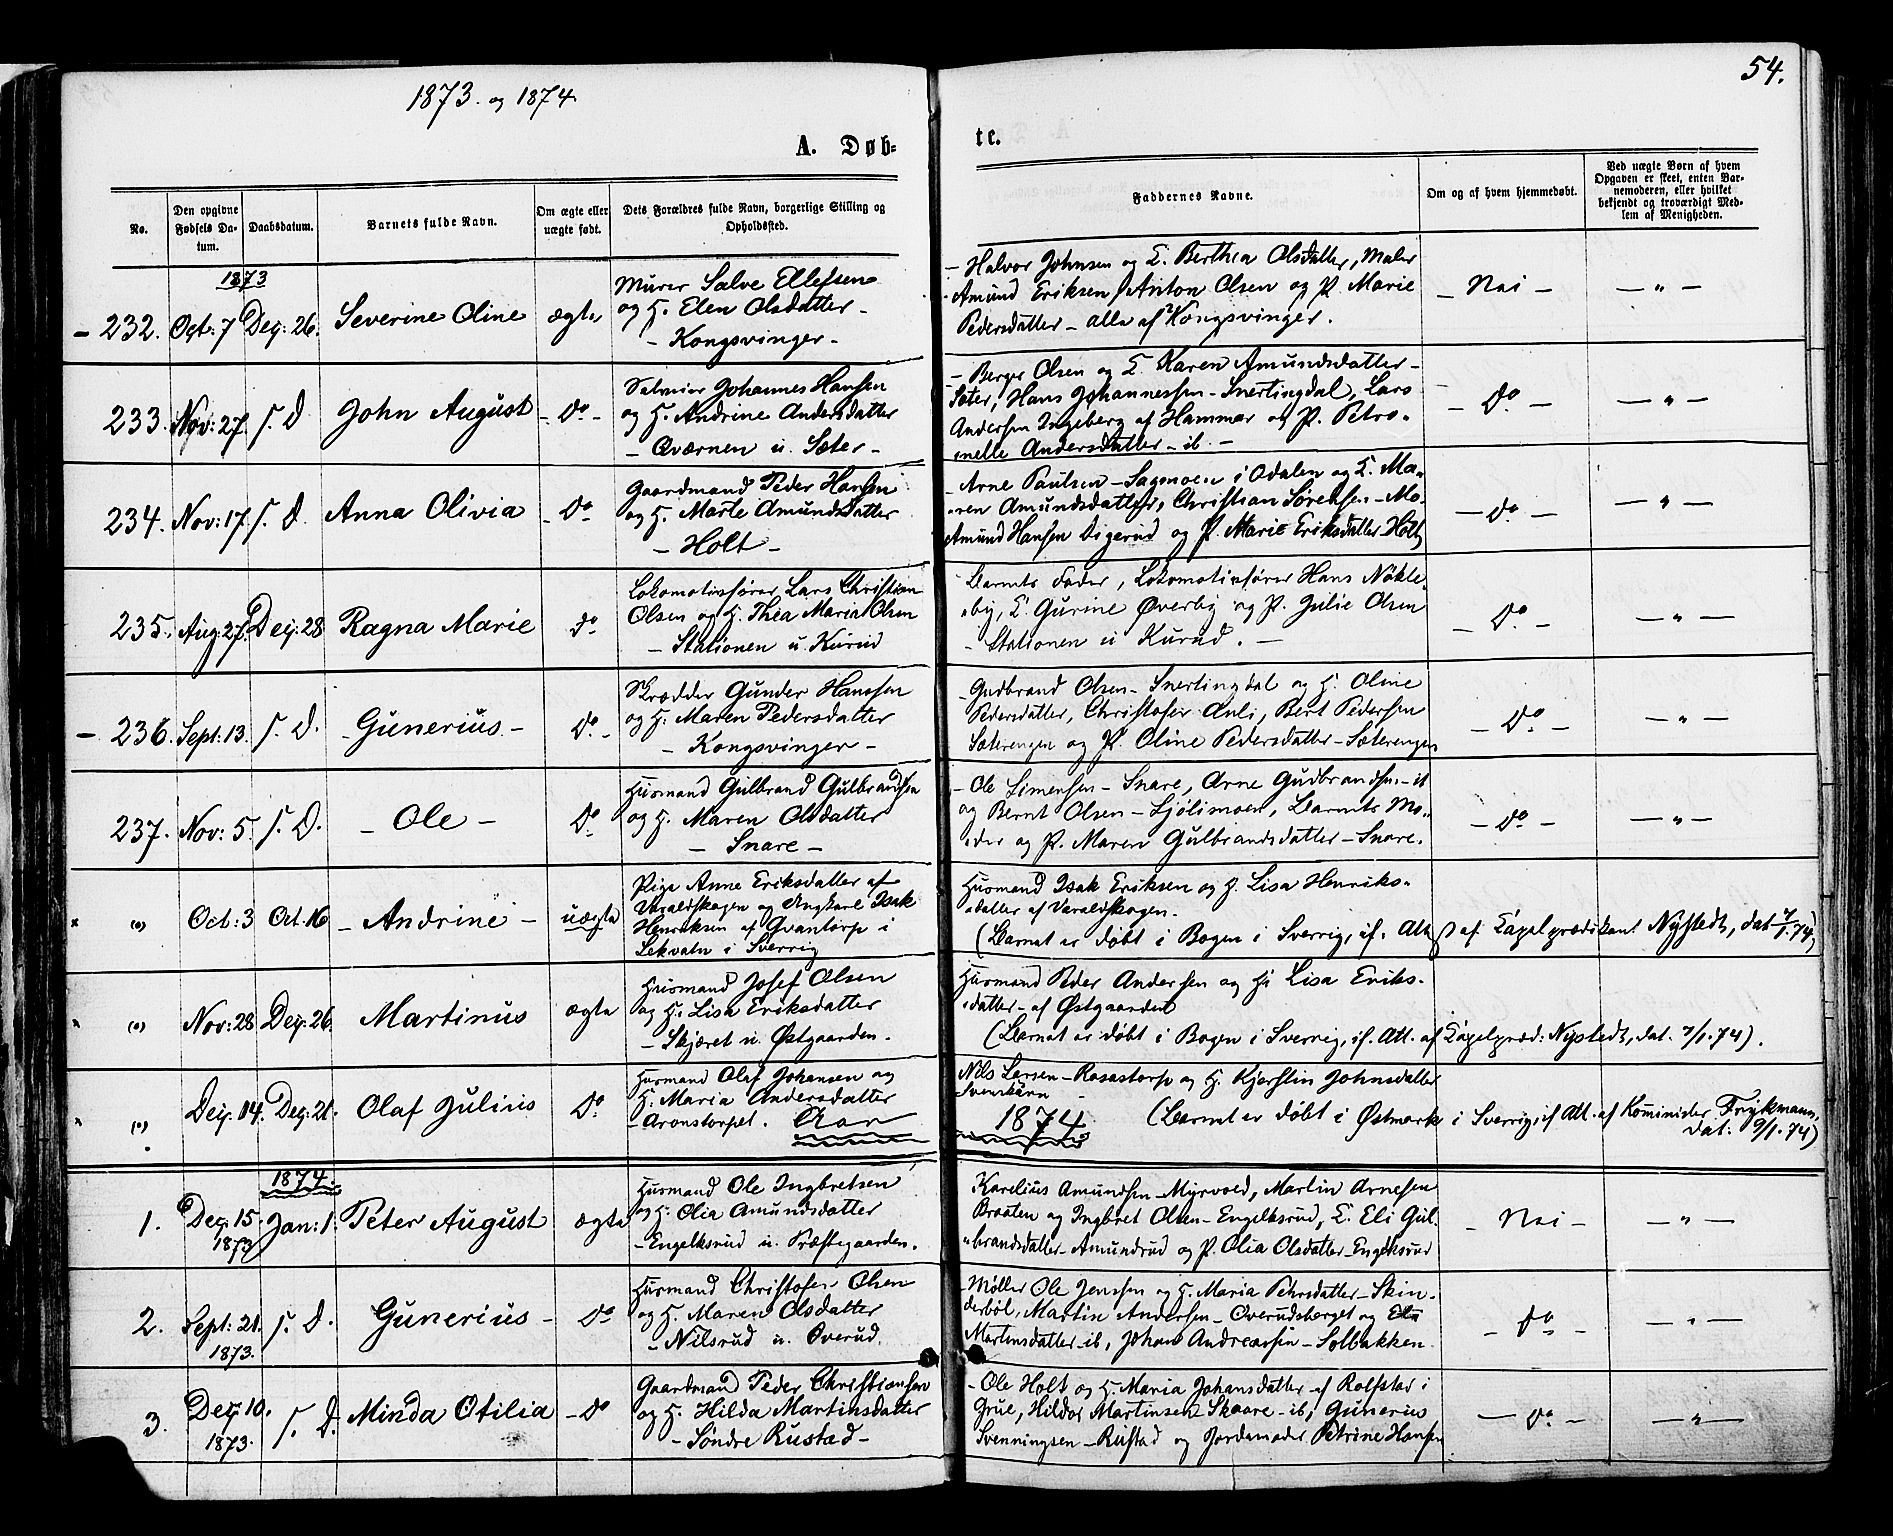 1873. og 1874
54.
A. Døb-
te.
No.
Den opgivne
Fødsels Da-
tum.
Daabsdatum.
Barnets fulde Navn.
Om ægte eller
uægte født.
Dets Forældres fulde Navn, borgerlige Stilling og
Opholdssted.
Faddernes Navne.
Om og af hvem hjemmedøbt.
Ved uægte Børn af hvem
Opgaven er skeet, enten Bar-
nemoderen, eller hvilket
bekjendt og troværdigt Med-
lem af Menigheden.
1873
– 232. Oct: 7 Dec: 26. Severine Oline ægte
Murer Salve Ellefsen
og H. Elen Olsdatter –
– Kongsvinger –
– Halvor Johnsen og E. Berthea Olsdatter, Maler
Amund Eriksen, Anton Olsen og P. Marie
Pedersdatter – alle af Kongsvinger.
– Nei – – " –
233. Nov: 27. s. D John August – do –
Johannes Hansen
og H. Andrine Andersdatter
– Qværnen u. Sæter –
– Berger Olsen og E. Karen Amundsdatter –
Sæter, Hans Johannessen – Snertingdal, Lars
Andersen Ingeberg af Hammer og P. Petro-
nelle Andersdatter – ib. –
– do – – " –
234. Nov: 17. s. d. Anna Olivia – do
Gaardmand Peder Hansen
og H. Marte Amundsdatter
– Holt –
– Arne Paulsen – Sagmoen i Odalen og E. Ma-
ren Amundsdatter, Christian Sørensen – Mo
Amund Hansen Digerud og P. Marie Eriksdatter – Holt
– do – – " –
235. Aug: 27. Dec: 28 Ragna Marie do
Lokomotivfører Lars Christian
Olsen og H. Thea Maria Olsen
– Stationen u. Kurud
– Barnets Fader, Lokomotivfører Hans Nökle-
by, E. Gurine Øverby og P. Julie Olsen
– Stationen u Kurud. –
– do – – " –
– 236. Sept: 13. s. D. – Gunerius – do –
Skrædder Gunder Hanssen
og H. Maren Pedersdatter
– Kongsvinger –
– Gudbrand Olsen – Snertingdal og H. Oline
Pedersdatter, Christofer Anli, Bert Pedersen
Sæterengen og P. Oline Pedersdatter – Sæterengen
– do – – " –
237. Nov: 5. s. D. – Ole – do
Husmand Gulbrand Gulbrandsen
og H. Maren Olsdatter
– Snare –
– Ole Simensen – Snare, Arne Gudbrandsen – ib
og Bernt Olsen – Sjølimoen, Barnets Mo-
der og P. Maren Gulbrandsdatter – Snare.
– do – – " –
× (o) Oct: 3 Oct. 16 – Andrine – uægte
Pige Anne Eriksdatter af
Varaldskogen og Ungkarl Isak
Henriksen af Gvantorp i
Lekvatn i Sverrig
Husmand Isak Eriksen og H. Lisa Henriks-
datter af Varaldskogen.
(Barnet er døbt i Bogen i Sverrig, if. Att. af Capelprædikant Nystedt, dat 7/1.74)
× (o) Nov: 28 Dec: 26. Martinus ægte
Husmand Josef Olsen
og H. Lisa Eriksdatter
– Skjæret u. Østgaarden.
Husmand Peder Andersen og H. Lisa Eriks-
datter – af Østgaarden
(Barnet er døbt i Bogen i Sverrig, if. Att. af Capelpræd: Nystedt, dat. 7/1.74).
× (o) Dec: 14. Dec: 21. Olaf Julius do
Husmand Olaf Johansen og
H. Maria Andersdatter
– Aronstorpet. Aar
Nils Larsen – Rosastorp og H. Kjerstin Johnsdatter
1874 (Barnet er døbt i Østmark i Sverrig, if Att. af Kominister Frykmann,
dat: 9/1.74)
1874.
1. Dec: 15. 1873 Jan: 1. Peter August ægte
Husmand Ole Ingbretsen
og H. Olia Amundsdatter
– Engelksrud u. Præstegaarden.
Karelius Amundsen – Myrvold, Martin Arnesen
Braaten og Ingbret Olsen – Engelksrud, E. Eli Gul-
brandsdatter – Amundrud og P. Olia Olsdatter – Engelksrud
– Nei – – " –
2. Sept: 21. 1873. s. D. Gunerius – do
Husmand Christofer Olsen
og H. Maren Olsdatter
– Nilsrud u. Overud.
– Møller Ole Jenssen og H. Maria Pehrsdatter – Skin-
derböl, Martin Andersen – Overudsberget og Eli
Martinsdatter – ib, Johan Andreassen – Solbakken.
– do – – " –
3. Dec: 10. 1873. s. D. Minda Otilia – do
Gaardmand Peder Christiansen
og H. Hilda Martinsdatter
– Søndre Rustad –
– Ole Holt og H. Maria Johansdatter af Rolfstad i
Grue, Hildor Martinsen Skaare – ib, Gunerius
Svenningsen – Rustad og Jordemoder Petrine Hansen
– do – – " –